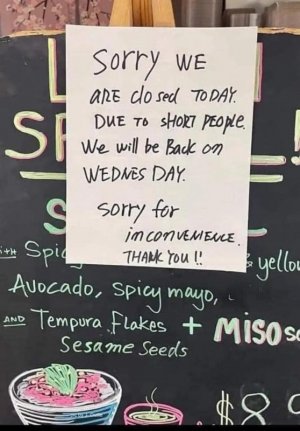 Sorry WE
ARE closed TODAY.
DUE TO SHORT PEOPLE.
We will be Back on
WEDNES DAY.
Sorry for
inconVENIENCE.
THANK YOU !!
Avocado, Spicy mayo,
AND Tempura Flakes + MISO
Sesame Seeds